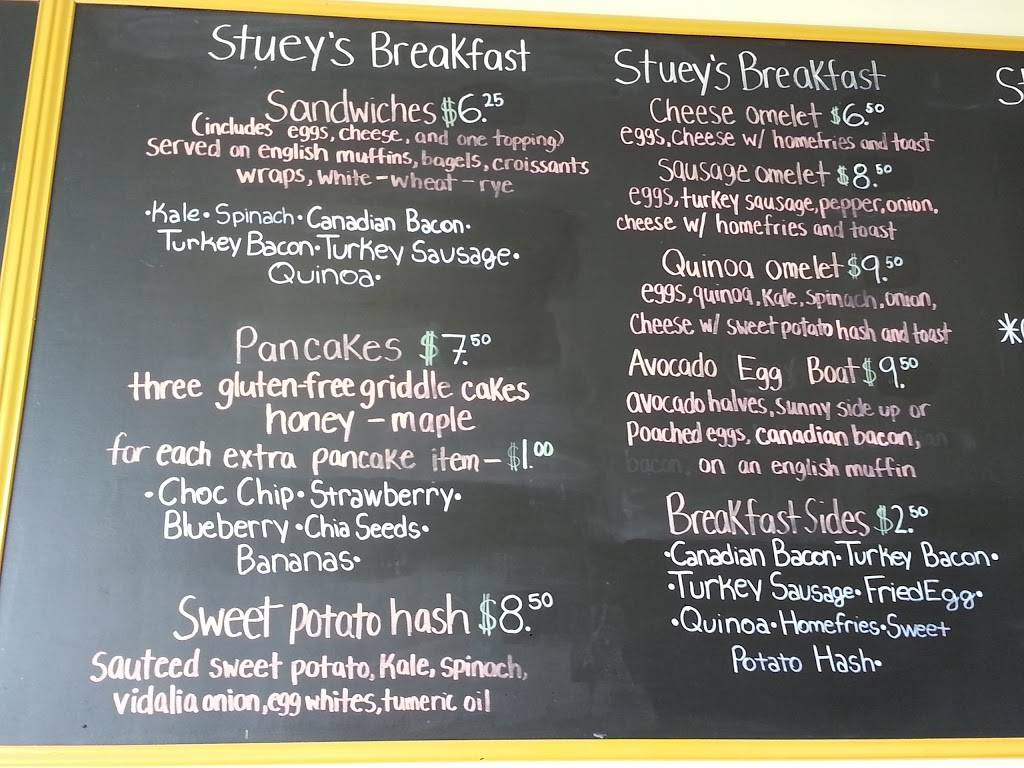 Stuey's Breakfast
Sandwiches $6.25
(includes eggs, cheese, and one topping)
served on english muffins, bagels, croissants
wraps, white-wheat-rye
•Kale•Spinach•Canadian Bacon•
Turkey Bacon•Turkey Sausage•
Quinoa•
Pancakes $7.50
three gluten-free griddle cakes
honey - maple
for each extra pancake item - $1.00
•Choc Chip•Strawberry•
Blueberry•Chia Seeds•
Bananas•
Sweet Potato hash $8.50
Sauteed sweet potato, Kale, spinach,
vidalia onion, egg whites, tumeric oil
Stuey's Breakfast
Cheese omelet $6.50
eggs, cheese w/ homefries and toast
Sausage omelet $8.50
eggs, turkey sausage, pepper, onion,
cheese w/ homefries and toast
Quinoa omelet $9.50
eggs, quinoa, Kale, spinach, onion,
Cheese w/ sweet potato hash and toast
Avocado Egg Boat $9.50
avocado halves, sunny side up or
Poached eggs, canadian bacon,
on an english muffin
Breakfast Sides $2.50
•Canadian Bacon•Turkey Bacon•
•Turkey Sausage•Fried Egg•
•Quinoa•Homefries•Sweet
Potato Hash•